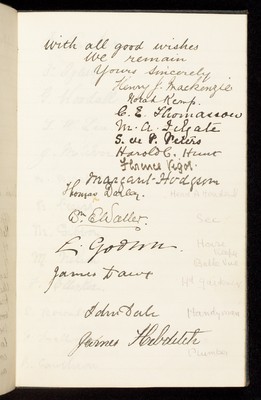 with all good wishes
We remain
Yours Sincerely
Henry J. Mackenzie
Kemp.
C. E. Thomasson
M. A. Idgate
S. de P. Peters
Harold C. Hunt
Florence
Margaret Hodgson
Thomas Darley.
E Waller.
E. Godson.
James Dawe
John Dale
James Hebditch